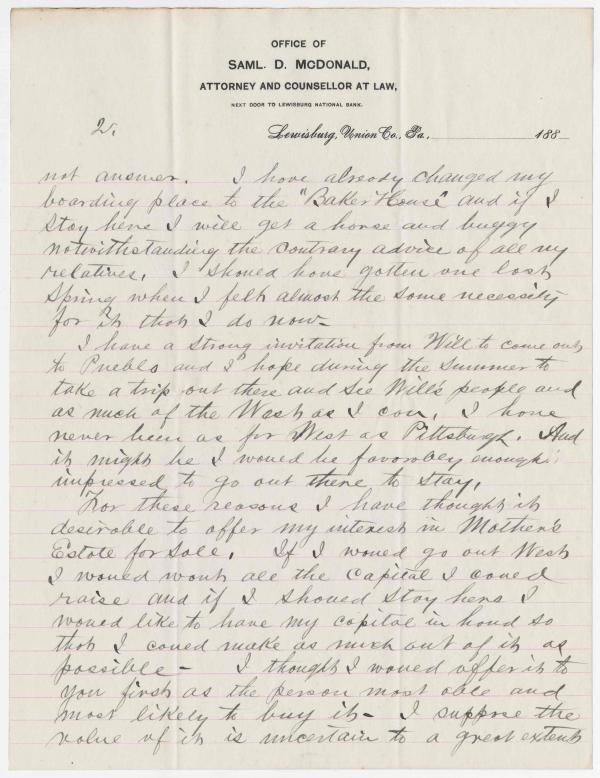 OFFICE OF
SAML. D. MCDONALD,
ATTORNEY AND COUNSELLOR AT LAW,
NEXT DOOR TO LEWISBURG NATIONAL BANK.
2. Lewisburg, Union Co., Pa. 188
not answer. I have already changed my
boarding place to the "Baker House" and if I
stay here I will get a horse and buggy
notwithstanding the contrary advice of all my
relatives. I should have gotten one last
spring when I felt almost the same necessity
for it that I do now -
I have a strong invitation from Will to come out
to Pueblo and I hope during the summer to
take a trip out there and see Will's people and
as much of the West as I can. I have
never been as far West as Pittsburgh. And
it might be I would be favorably enough
impressed to go out there to stay.
For these reasons I have thought it
desirable to offer my interest in Mother's
Estate for sale. If I would go out West
I would want all the capital I could
raise and if I should stay here I
would like to have my capital in hand so
that I could make as much out of it as
possible - I thought I would offer it to
you first as the person most able and
most likely to buy it - I suppose the
value of it is uncertain to a great extent